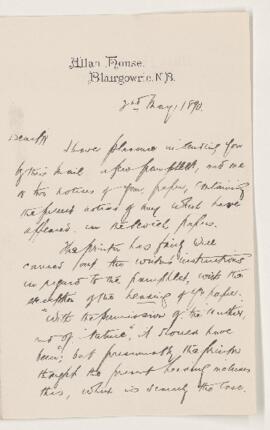 Allan House,
Blairgowrie, N.B.
2nd May, 1890.
Dear Sir
I have pleasure in sending you
by this mail a few pamphlets,
to two notices of your paper, containing
the press notices of any which have
appeared in the Scotch papers.
The printer has fairly well
carried out the written instructions
in regard to the pamphlet, with the
exception of the heading of yr paper.
"With the permission of the author,
and of 'Nature'", it should have
been; but presumably the printer
thought the present heading
this, which is scarcely the case.